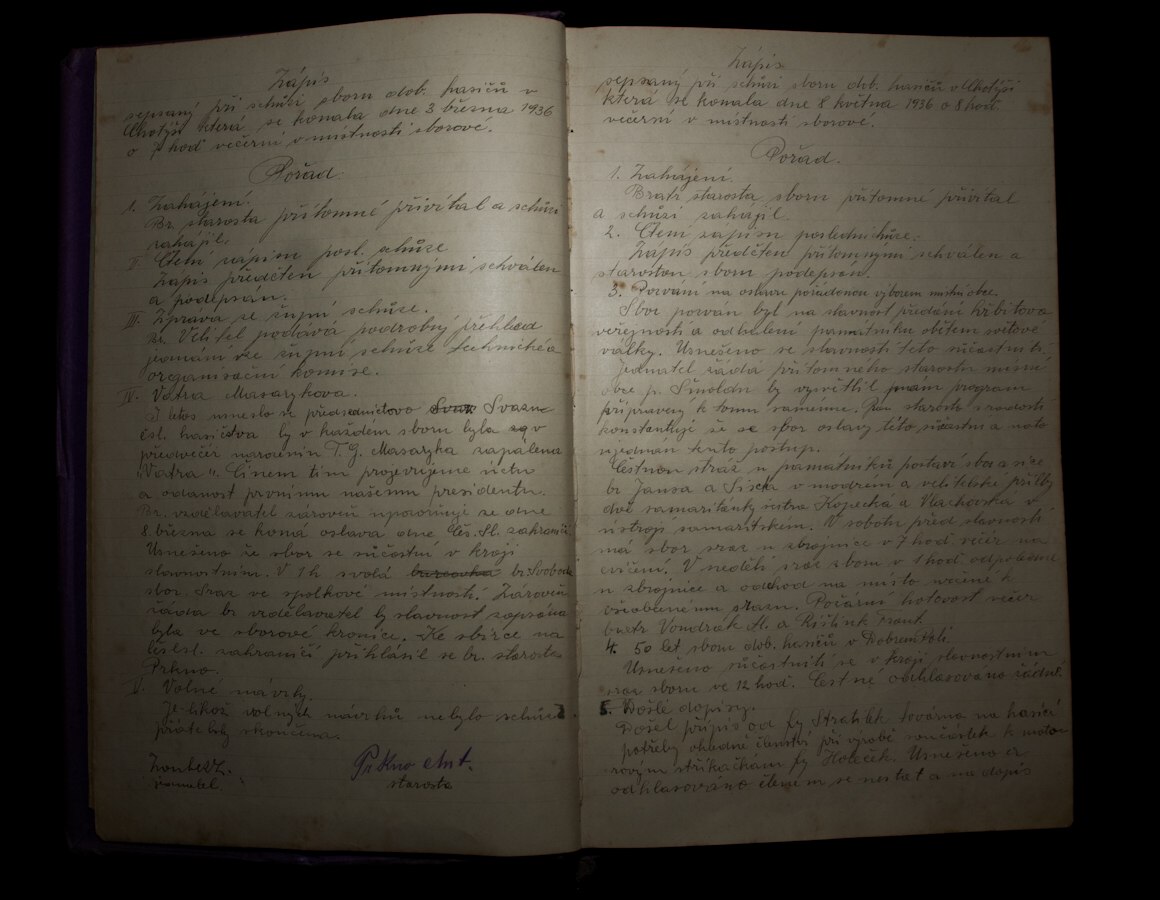 Zápis
sepsaný při schůzi sboru dob. hasičů v
Lhotýši která se konala dne 3 března 1936
o 7 hod večerní v místnosti sborové.
Pořad.
1. Zahájení.
Br. starosta přítomné přivítal a schůzi
zahájil.
II. Čtení zápisu posl. schůze
Zápis předčten přítomnými schválen
a podepsán.
III. Zpráva ze župní schůze.
Br. Velitel podává podrobný přehled
jednání ze župní schůze technické a
organisační komise.
IV. Vatra Masarykova.
I letos usneslo se předsednictvo Svazu
čsl. hasičstva by v každém sboru byla v
předvečer narozenin T. G. Masaryka zapálena
„Vatra". Činem tím projevujeme úctu
a oddanost prvnímu našemu presidentu.
Br. vzdělavatel zároveň upozorňuje že dne
8. března se koná oslava dne Čes. Sl. zahraničí
Usneseno že sbor se súčastní v kroji
slavnostním. V 1 h svolá br. Svoboda
sbor. Sraz ve spolkové místnosti. Zároveň
žádá br vzdělavatel by slavnost zapsána
byla ve sborové kronice. Ke sbírce na
čsl. zahraničí přihlásil se br. starosta
Prkno.
V. Volné návrhy.
Jelikož volných návrhů nebylo schůze
přátelsky skončena.
jednatel
Prkno Ant.
starosta
Zápis
sepsaný při schůzi sboru dob. hasičů v Lhotýši
která se konala dne 8 května 1936 o 8 hod
večerní v místnosti sborové.
Pořad.
1. Zahájení.
Bratr starosta sboru přítomné přivítal
a schůzi zahájil.
2. Čtení zápisu poslední schůze.
Zápis předčten přítomnými schválen a
starostou sboru podepsán.
3. Pozvání na oslavu pořádanou výborem místní obce.
Sbor pozván byl na slavnost předání hřbitova
veřejnosti a odhalení pamatníku obětem světové
války. Usneseno se slavnosti této súčastniti.
Jednatel žádá přítomného starostu místní
obce p. Šmoldu by vysvětlil program
připravený k tomu záměru. Pan starosta s radostí
konstatuje že se sbor oslavy této súčastní a
ujednán tento postup.
Čestnou stráž u památníku postaví sbor a sice
br Jansa a Siska v modření a velitelské přilby
dvě samaritánky sestra Kopecká a Vlachovská v
ústroji samaritském. V sobotu před slavností
má sbor sraz u zbrojnice v 7 hod večer na
cvičení. V neděli sraz sboru v 1 hod odpoledne
u zbrojnice a odchod na místo určené k
všeobecnému srazu. Požární hotovost večer
bratr Vondrák Al. a Kištink Frant.
4. 50 let sboru dob. hasičů v Dobremboli.
Usneseno súčastniti se v kroji slavnostním
sraz sboru ve 12 hod. Čestně odhlasováno řádně
5. Došlé dopisy.
Došel přípis od fy Strahlek továrna na hasičí
potřeby ohledně členství při výrobě součástek k moto-
rovým stříkačkám fy Holeček. Usneseno a
odhlasováno členem se nestat a na dopis